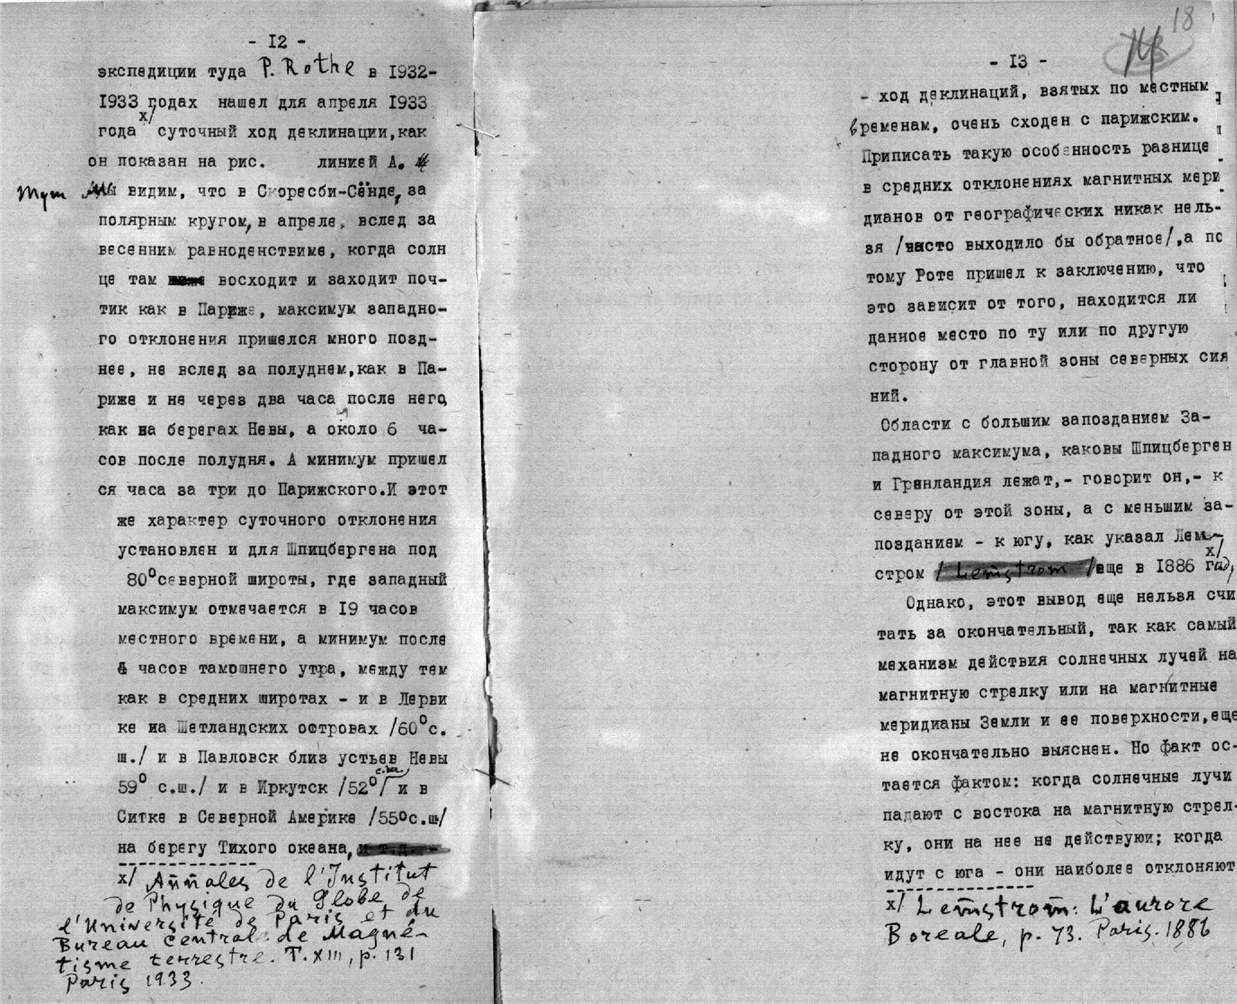 - 12 -
экспедиции туда P. Rothe в 1932-
1933 годах нашел для апреля 1933
х/
года суточный ход деклинации,как
он показан на рис. линией А.
Тут Мы видим, что в Скоресби-Сёнде, за
полярным кругом, в апреле, вслед за
весенним равноденствиме, когда солн
це там восходит и заходит поч-
тик как в Париже, максимум западно-
го отклонения пришелся много позд-
нее, не вслед за полуднем,как в Па-
риже и не через два часа после него,
как на берегах Невы, а около 6 ча-
сов после полудня. А минимум пришел
ся часа за три до Парижского.И этот
же характер суточного отклонения
установлен и для Шпицбергена под
80° северной широты, где западный
максимум отмечается в 19 часов
местного времени, а минимум после
4 часов тамошнего утра, между тем
как в средних широтах - и в Лерви
ке на Шетландских островах /60° с.
ш./ и в Павловск близ устьев Невы
59° с.ш./ и в Иркутск /52° с.ш./ и в
Ситке в Северной Америке /55° с.ш/
на берегу Тихого океана, и т.д.
х/ Annales de l'Institut
de Physique du Globe de
l'Université de Paris et du
Bureau central de Magné-
tisme terrestre. T. XIII, p. 131
Paris 1933.
18
- 13 -
- ход деклинаций, взятых по местным
временам, очень сходен с парижским.
Приписать такую особенность разнице
в средних отклонениях магнитных мери
дианов от географических никак нель-
зя /часто выходило бы обратное/,а по
тому Роте пришел к заключению, что
это зависит от того, находится ли
данное место по ту или по другую
сторону от главной зоны северных сия
ний.
Области с большим запозданием За-
падного максимума, каковы Шпицберген
и Гренландия лежат,- говорит он,- к
северу от этой зоны, а с меньшим за-
позданием - к югу, как указал Лем-
х/
стром /Lemstrom/ еще в 1886 году
Однако, этот вывод еще нельзя счи
тать за окончательный, так как самый
механизм действия солнечных лучей на
магнитную стрелку или на магнитные
меридианы Земли и ее поверхности,еще
не окончательно выяснен. Но факт ос-
тается фактом: когда солнечные лучи
падают с востока на магнитную стрел-
ку, они на нее не действуюи; когда
идут с юга - они наиболее отклоняют
х/ Lemstrom: L'aurore
Boreale, p. 73. Paris. 1886